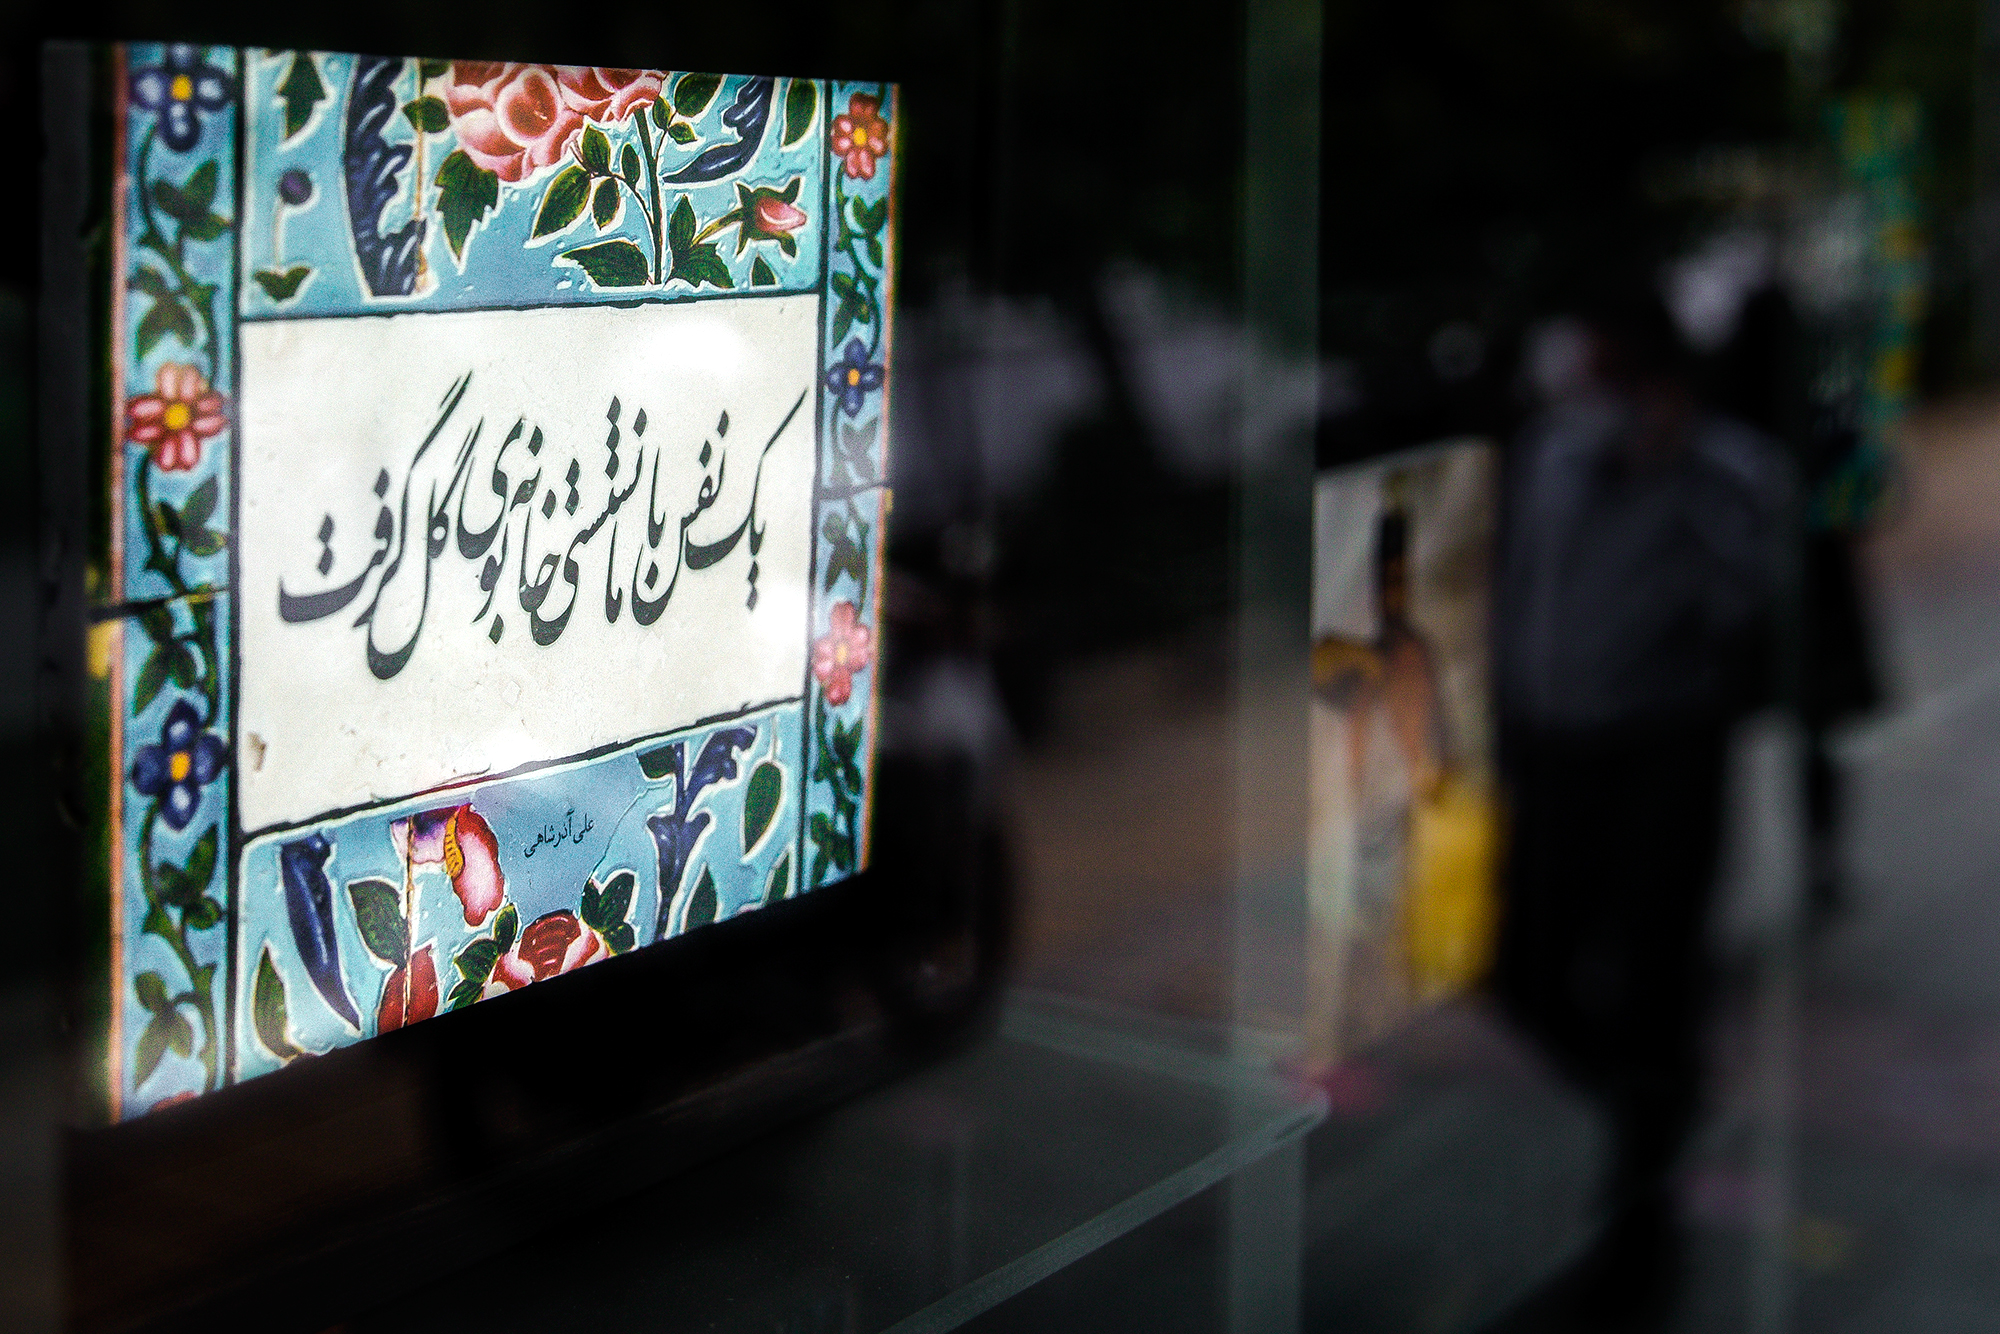 یک نفس با ما نشستی خانه بوی گل گرفت
علی آذرشاهی